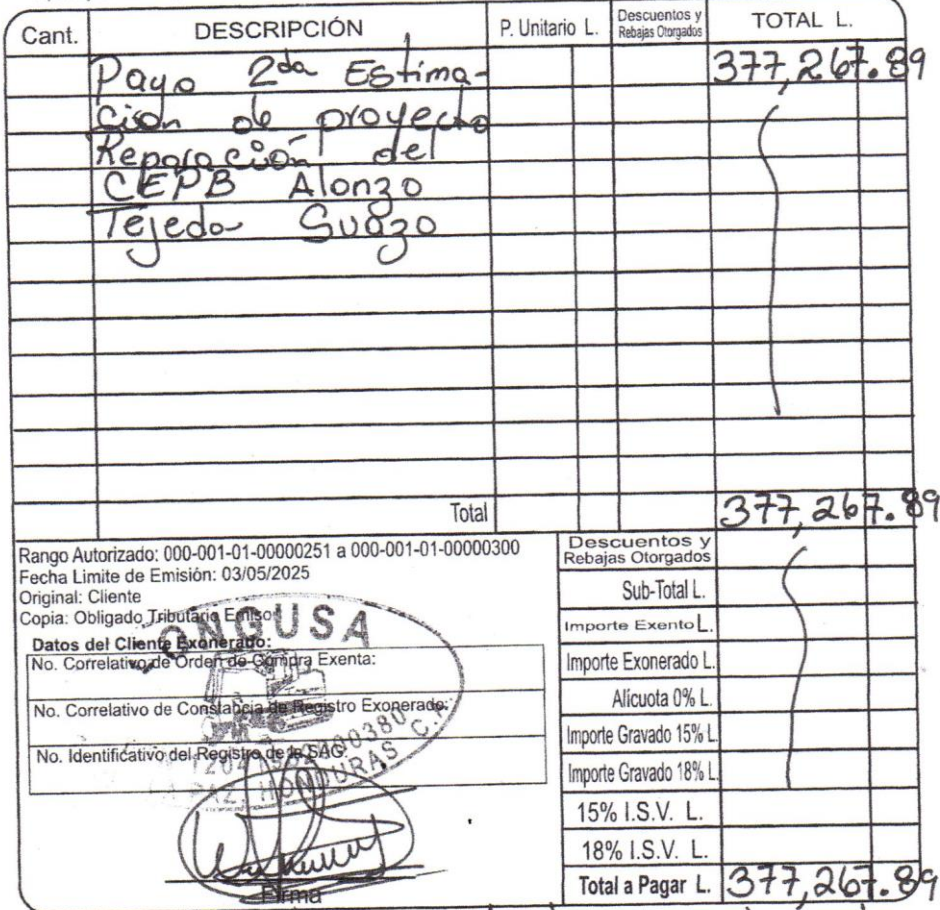 Cant.
DESCRIPCIÓN
P. Unitario L.
Descuentos y
Rebajas Otorgados
TOTAL L.
Pago 2da Estima-
ción de proyecto
Reparación del
CEPB Alonzo
Tejeda Suazo
377,267.89
Total
377,267.89
Rango Autorizado: 000-001-01-00000251 a 000-001-01-00000300
Fecha Limite de Emisión: 03/05/2025
Original: Cliente
Copia: Obligado Tributario Emisor
Datos del Cliente Exonerado:
No. Correlativo de Orden de Compra Exenta:
No. Correlativo de Constancia de Registro Exonerado:
No. Identificativo del Registro de la SAG:
HONDURAS C.A.
Firma
Descuentos y
Rebajas Otorgados
Sub-Total L.
Importe Exento L.
Importe Exonerado L.
Alicuota 0% L.
Importe Gravado 15% L.
Importe Gravado 18% L.
15% I.S.V. L.
18% I.S.V. L.
Total a Pagar L.
377,267.89